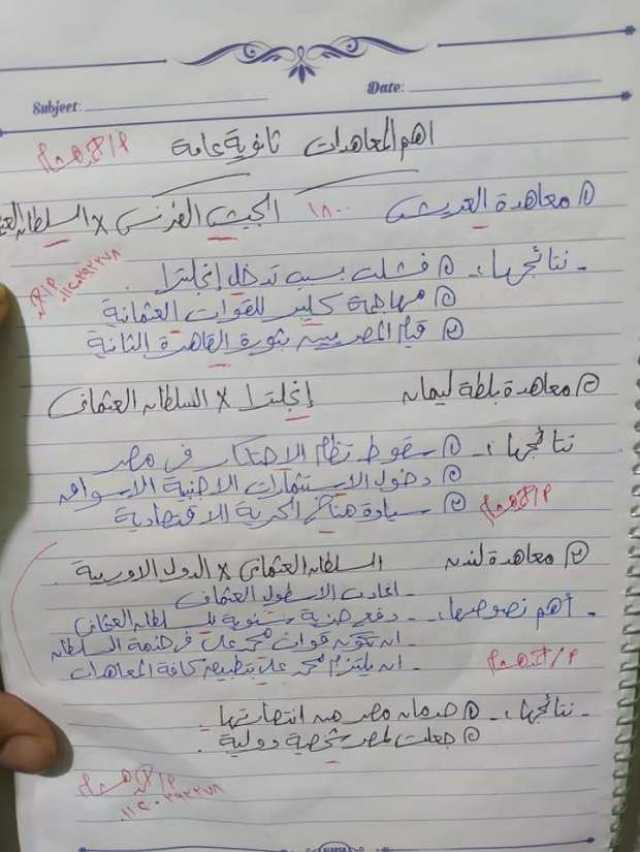 Subject:
Date:
اهم المعاهدات ثانوية عامة
① معاهدة العريش ١٨٠٠ الجيش الفرنسي X السلطان
- نتائجها :- ① فشلت بسبب تدخل إنجلترا .
② مهاجمة كليبر للقوات العثمانية
③ قيام المصريين بثورة القاهرة الثانية
② معاهدة بلطة ليمان إنجلترا X السلطان العثماني
نتائجها :- ① سقوط نظام الاحتكار في مصر
② دخول الاستثمارات الاجنبية الاسواق
③ سيادة مناخ الحرية الاقتصادية
③ معاهدة لندن السلطان العثماني X الدول الاوربية .
- اعادت الاسطول العثماني
- أهم نصوصها :- - دفع جزية سنوية للسلطان العثماني
- ان تكون قوات محمد على في خدمة السلطان
- ان يلتزم محمد على بتطبيق كافة المعاهدات
- نتائجها :- ① ضمان مصر من انتصاراتها
② جعلت لمصر شخصية دولية .